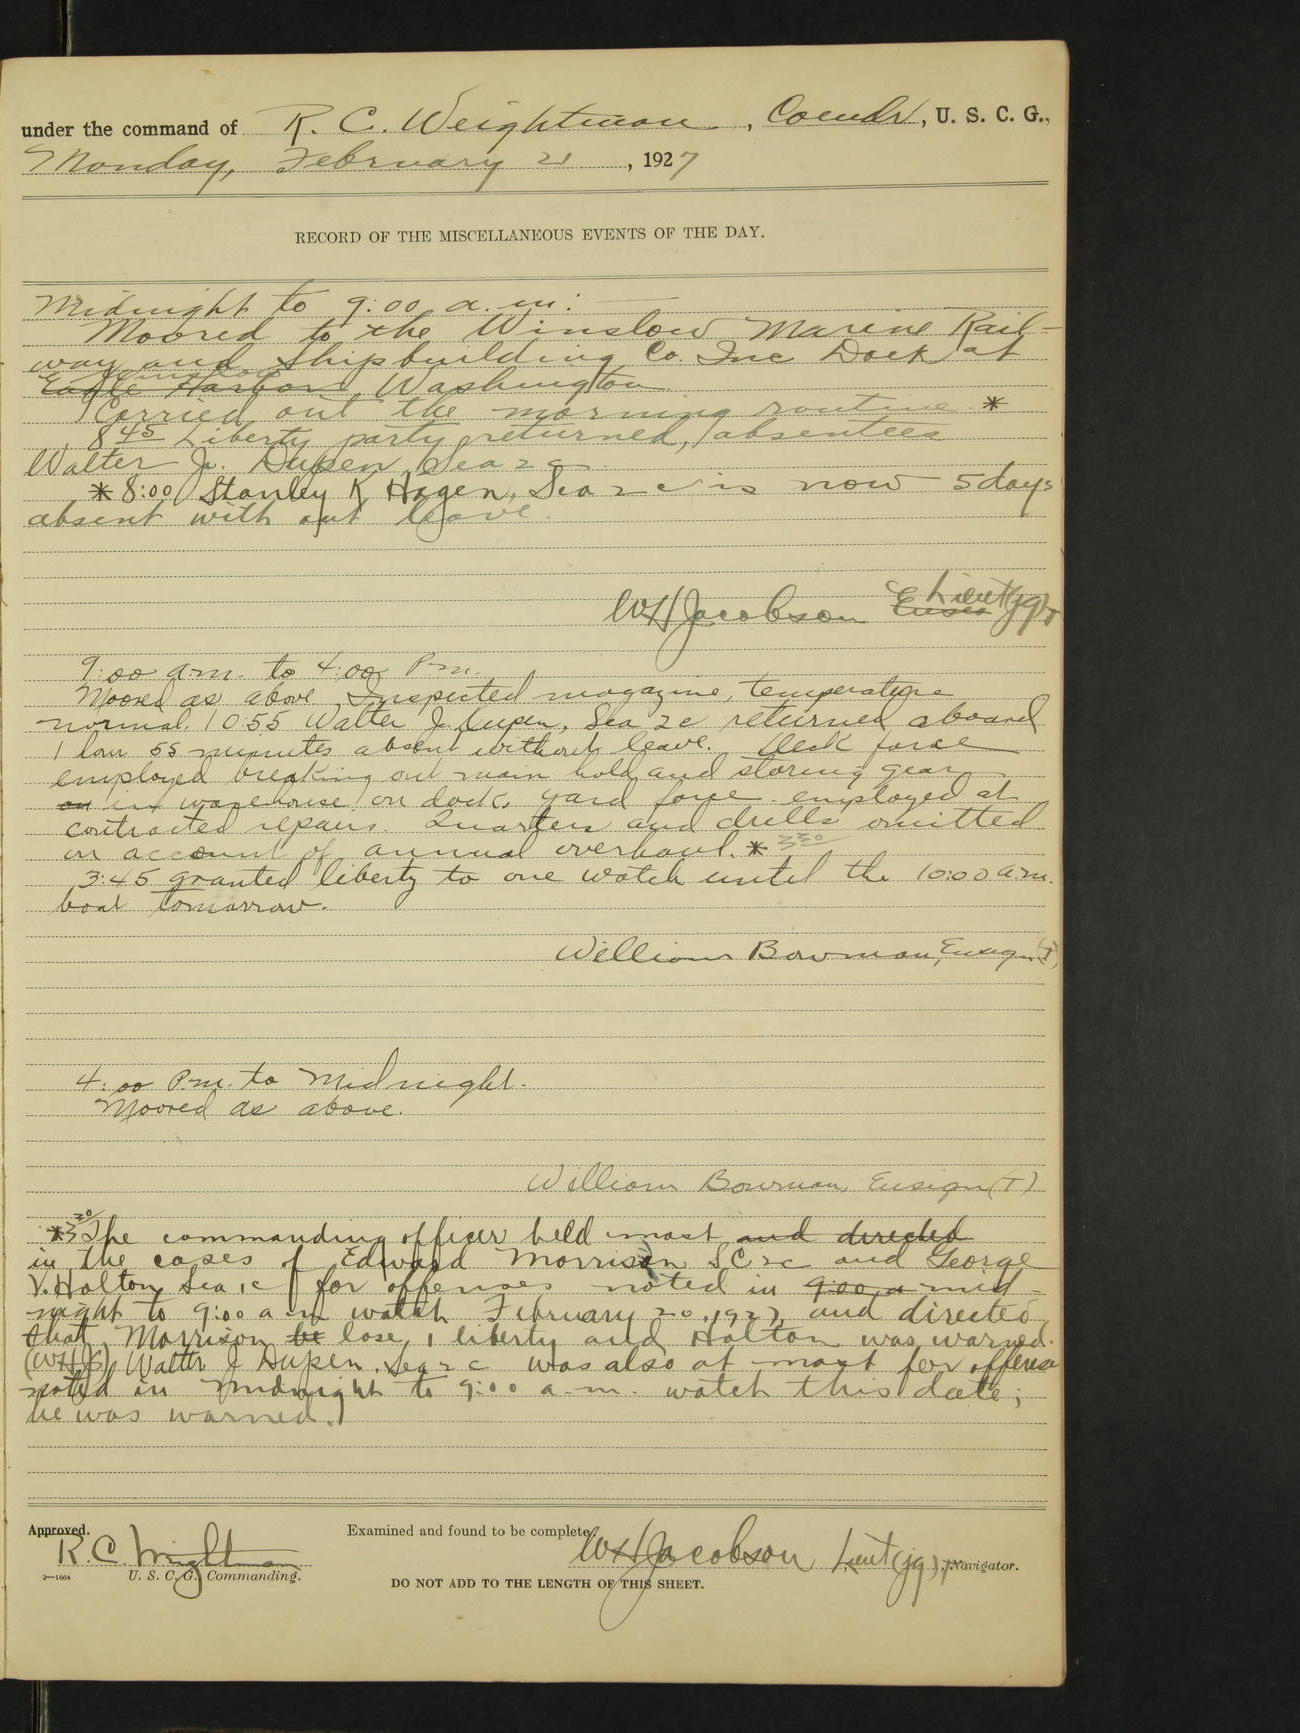 under the command of R. C. Weightman, Comdr, U. S. C. G.,
Monday, February 21, 1927
RECORD OF THE MISCELLANEOUS EVENTS OF THE DAY.
Midnight to 9:00 a.m:
Moored to the Winslow Marine Rail-
way and Shipbuilding Co. Inc Dock at
Eagle Harbor Washington
Carried out the morning routine *
8 45 Liberty party returned, absentees
Walter J. Dupen, Sea 2c.
* 8:00 Stanley K Hagen, Sea 2c is now 5 days
absent with out leave.
WHJacobson Lieut(jg)T
9:00 a.m. to 4:00 P.m.
Moored as above. Inspected magazine, temperature
normal. 10:55 Walter J. Dupen, Sea 2c returned aboard
1 hour 55 minutes absent without leave. Deck force
employed breaking out main hold and storing gear
on in warehouse on dock. Yard force employed at
contracted repairs. Quarters and drills omitted
on account of annual overhaul. * 3 30
3:45 granted liberty to one watch until the 10:00 a.m.
boat tomorrow.
William Bowman, Ensign (T)
4:00 P.m. to Midnight.
Moored as above.
William Bowman, Ensign (T)
* 3 30 The commanding officer held mast and directed
in the cases of Edward Morrison SC2c and George
V. Holton Sea 1c for offenses noted in 9:00 a mid-
night to 9:00 a-m watch February 20, 1927, and directed
that Morrison be lose 1 liberty and Holton was warned.
(WHJ) Walter J Dupen. Sea 2c was also at mast for offense
noted in midnight to 9:00 a-m. watch this date;
he was warned.
Approved.
Examined and found to be complete.
R. C. Weightman
WHJacobson Lieut(jg)T, Navigator.
2—1664
U. S. C. G. Commanding.
DO NOT ADD TO THE LENGTH OF THIS SHEET.